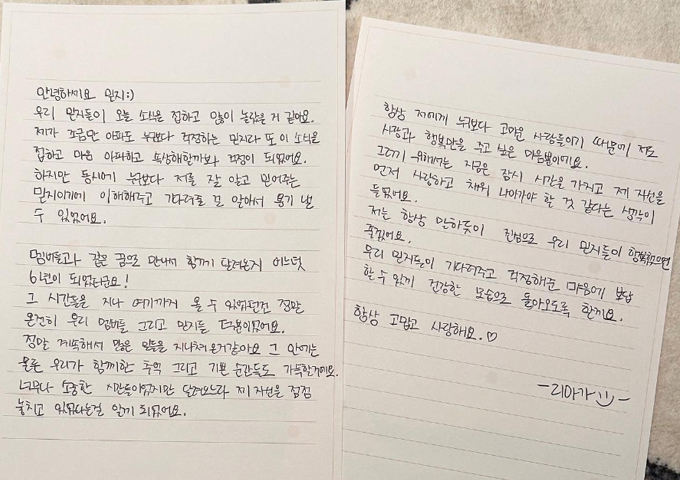 안녕하세요 믿지:)
우리 믿지들이 오늘 소식을 접하고 많이 놀랐을 거 같아요.
제가 조금만 아파도 누구보다 걱정하는 믿지라 또 이 소식을
접하고 마음 아파하고 속상해할까봐 걱정이 되었어요.
하지만 동시에 누구보다 저를 잘 알고 믿어주는
믿지이기에 이해해주고 기다려줄 걸 알아서 용기 낼
수 있었어요.
멤버들과 같은 꿈으로 만나서 함께 달려온지 어느덧
6년이 되었더군요!
그 시간들을 지나 여기까지 올 수 있었던건 정말
온전히 우리 멤버들 그리고 믿지들 덕분이었어요.
정말 계속해서 많은 일들을 지나쳐온거같아요 그 안에는
물론 우리가 함께한 추억 그리고 기쁜 순간들도 가득할거에요.
너무나 소중한 시간들이었지만 달려오느라 제 자신을 점점
놓치고 있었다는걸 알게 되었어요.
항상 저에게 누구보다 고마운 사람들이기 때문에 저도
사랑과 행복만을 주고 싶은 마음뿐이에요.
그러기 위해서는 지금은 잠시 시간을 가지고 제 자신을
먼저 사랑하고 채워 나아가야 할 것 같다는 생각이
들었어요.
저는 항상 말하듯이 진심으로 우리 믿지들이 행복했으면
좋겠어요.
우리 믿지들이 기다려주고 걱정해준 마음에 보답
할 수 있게 건강한 모습으로 돌아오도록 할게요.
항상 고맙고 사랑해요.♡
-리아가-